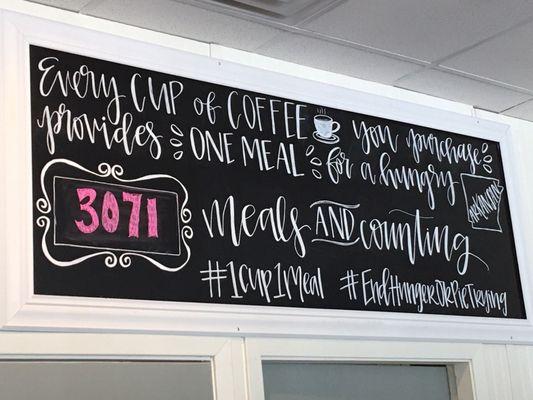 Every CUP of COFFEE you purchase
provides ONE MEAL for a hungry ARKANSAN
3071 meals AND counting
#1Cup1Meal #EndHungerOrPieTrying